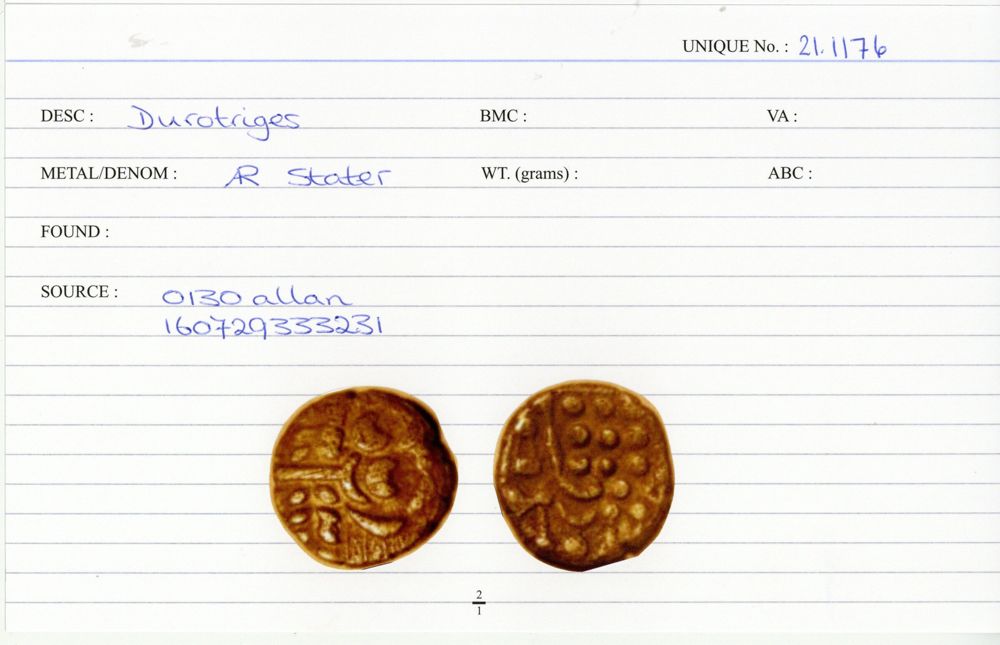 UNIQUE No. : 21.1176
DESC : Durotriges BMC : VA :
METAL/DENOM : AR Stater WT. (grams) : ABC :
FOUND :
SOURCE : 0130 allan
160729333231
2
1